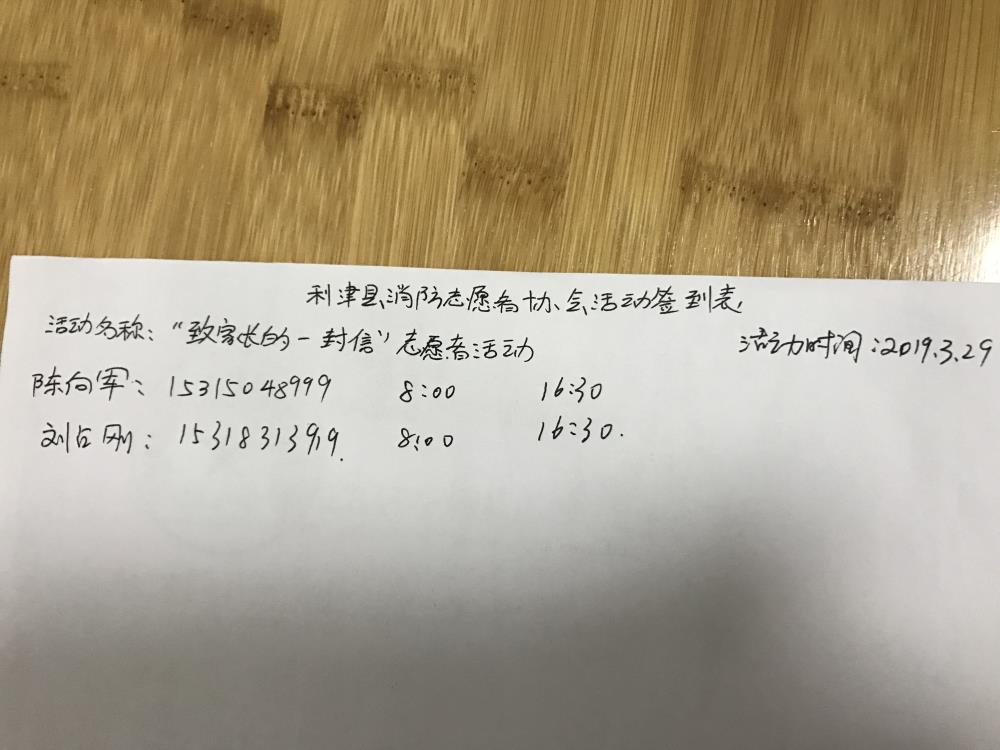 利津县消防志愿者协会活动签到表
活动名称:“致家长的一封信”志愿者活动 活动时间:2019.3.29
陈向军: 15315048999 8:00 16:30
刘占刚: 15318313919. 8:00 16:30.